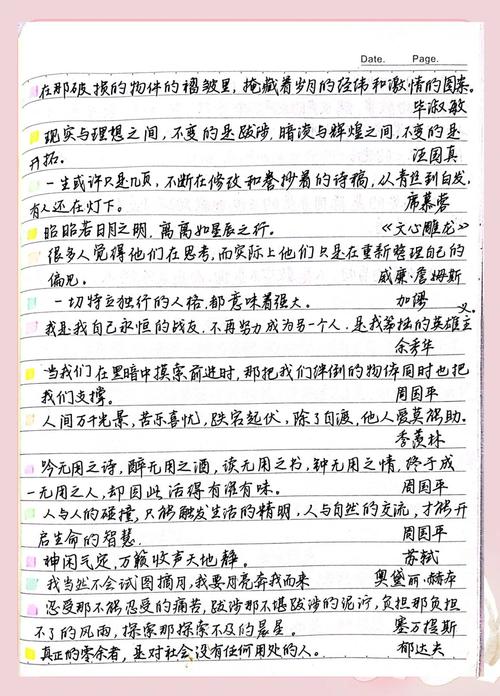 Date.    Page.
在那破损的物件的褶皱里,掩藏着岁月的经伟和激情的图案。
毕淑敏
现实与理想之间,不变的是跋涉,暗淡与辉煌之间,不变的是
开拓。 汪国真
一生或许只是几页,不断在修改和誊抄着的诗稿,从青丝到白发,
有人还在灯下。 席慕蓉
昭昭若日月之明,离离如星辰之行。 《文心雕龙》
很多人觉得他们在思考,而实际上他们只是在重新整理自己的
偏见。 威廉·詹姆斯
一切特立独行的人格,都意味着强大。 加缪
我是我自己永恒的战友,不再努力成为另一个人,是我单挑的英雄主义。
余秀华
当我们在黑暗中摸索前进时,那把我们绊倒的物体同时也把
我们支撑。 周国平
人间万千光景,苦乐喜忧,跌宕起伏,除了自渡,他人爱莫能助。
季羡林
吟无用之诗,醉无用之酒,读无用之书,钟无用之情,终于成
一无用之人,却因此活得有滋有味。 周国平
人与人的碰撞,只能触发生活的精明,人与自然的交流,才能开
启生命的智慧。 周国平
神闲气定,万籁收声天地静。 苏轼
我当然不会试图摘月,我要月亮奔我而来 奥黛丽·赫本
忍受那不能忍受的痛苦,跋涉那不堪跋涉的泥泞,负担那负担
不了的风雨,探索那探索不及的晨星。 塞万提斯
真正的零余者,是对社会没有任何用处的人。 郁达夫